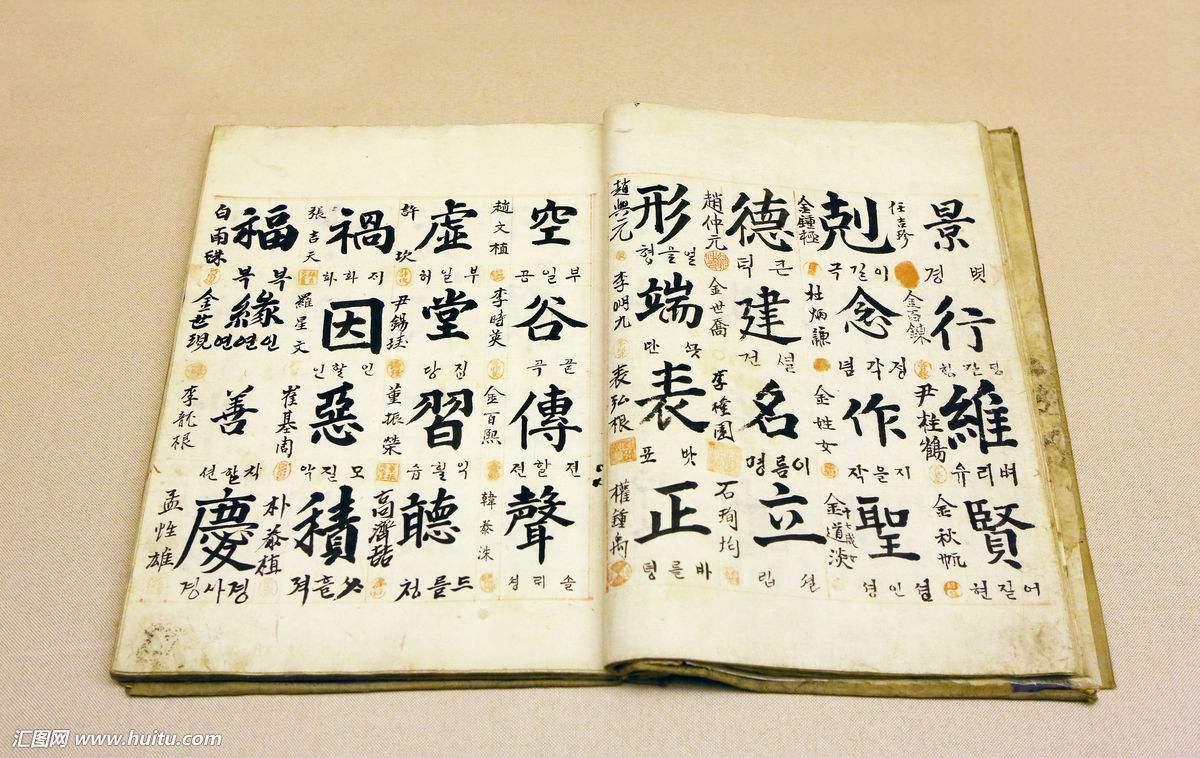 景行維賢
任吉珍
볏 경
尹桂鶴
벼리 유
金秋帆
어질 현
剋念作聖
金鍾極
이길 극
杜炳謙
각 념
金姓女
지을 작
金道淡
셩인 셩
德建名立
趙仲元
큰 덕
金世喬
셜 건
李橦園
이름 명
石珣均
셜 립
形端表正
趙興元
얼골 형
李明九
끗 단
表弘根
밧 표
權鍾禹
바를 졍
空谷傳聲
趙文植
부일 공
李時英
골 곡
金百熙
전할 전
韓泰洙
소리 셩
虛堂習聽
許坎
부일 허
尹錫珪
집 당
董振榮
익힐 습
高濟喆
드를 청
禍因惡積
張吉天
지화 화
羅星文
인할 인
崔基周
모질 악
朴恭植
싸흘 적
福緣善慶
白雨珠
부 부
金世現
인연 연
李龍根
착할 션
孟性雄
경사 경
汇图网 www.huitu.com